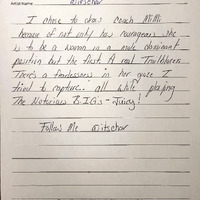 Artist Name @itschar
I chose to draw Coach Milli
because of not only how courageous she
is to be a woman in a male dominant
position but the first. A real Trailblazer.
There's a fearlessness in her gaze I
tried to capture.. all while playing
The Notorious B.I.G.s - Juicy!
Follow Me @itschar